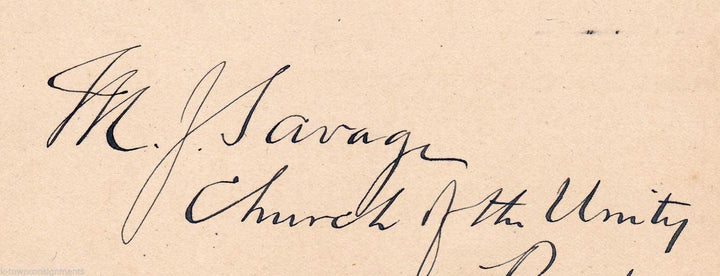 M. J. Savage
Church of the Unity
k-townconsignments